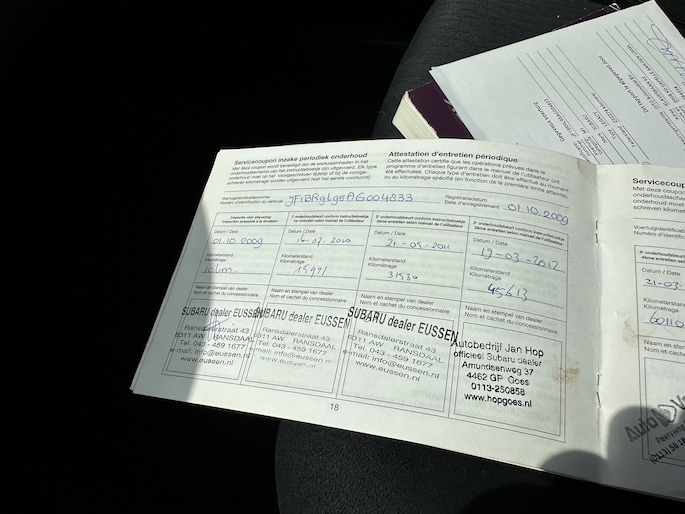 Servicecoupon inzake periodiek onderhoud
Met deze coupon wordt bevestigd dat de werkzaamheden in het
onderhoudsschema van het instructieboekje zijn uitgevoerd. Elk type
onderhoud moet op het voorgeschreven tijdstip of bij de voorge-
schreven kilometrage worden uitgevoerd (wat het eerste voorkomt).
Attestation d'entretien périodique
Cette attestation certifie que les opérations prévues dans le
programme d'entretien figurant dans le manuel de l'utilisateur ont
été effectuées. Chaque type d'entretien doit être exécuté au moment
ou au kilométrage spécifié (en fonction de la première limite atteinte).
Voertuigidentificatienummer
Numéro d'identification du véhicule
Registratiedatum
Date d'enregistrement 01.10.2009
Inspectie vóór aflevering
Inspection préalable à la livraison
Datum / Date
01.10.2009
Kilometerstand
Kilométrage
10km
Naam en stempel van dealer
Nom et cachet du concessionnaire
SUBARU dealer EUSSEN
Ransdalerstraat 43
6311 AW RANSDAAL
Tel. 043 - 459 1677
e-mail: info@eussen.nl
www.eussen.nl
1e onderhoudsbeurt conform instructieboekje
1er entretien selon manuel de l'utilisateur
Datum / Date
Kilometerstand
Kilométrage
Naam en stempel van dealer
Nom et cachet du concessionnaire
SUBARU dealer EUSSEN
Ransdalerstraat 43
6311 AW RANSDAAL
Tel. 043 - 459 1677
e-mail: info@eussen.nl
www.eussen.nl
2e onderhoudsbeurt conform instructieboekje
2ème entretien selon manuel de l'utilisateur
Datum / Date
21-05-2011
Kilometerstand
Kilométrage
Naam en stempel van dealer
Nom et cachet du concessionnaire
SUBARU dealer EUSSEN
Ransdalerstraat 43
6311 AW RANSDAAL
Tel. 043 - 459 1677
e-mail: info@eussen.nl
www.eussen.nl
3e onderhoudsbeurt conform instructieboekje
3ème entretien selon manuel de l'utilisateur
Datum / Date
19-03-2012
Kilometerstand
Kilométrage
45613
Naam en stempel van dealer
Nom et cachet du concessionnaire
Autobedrijf Jan Hop
officieel Subaru dealer
Amundsenweg 37
4462 GP Goes
0113-250858
www.hopgoes.nl
18
Servicecoup
Met deze coupon
Voertuigidentificatie
Numéro d'identific
Datum / Date
31-03-
Kilometerstand
Kilométrage
60110
Naam en stem
Nom et cachet